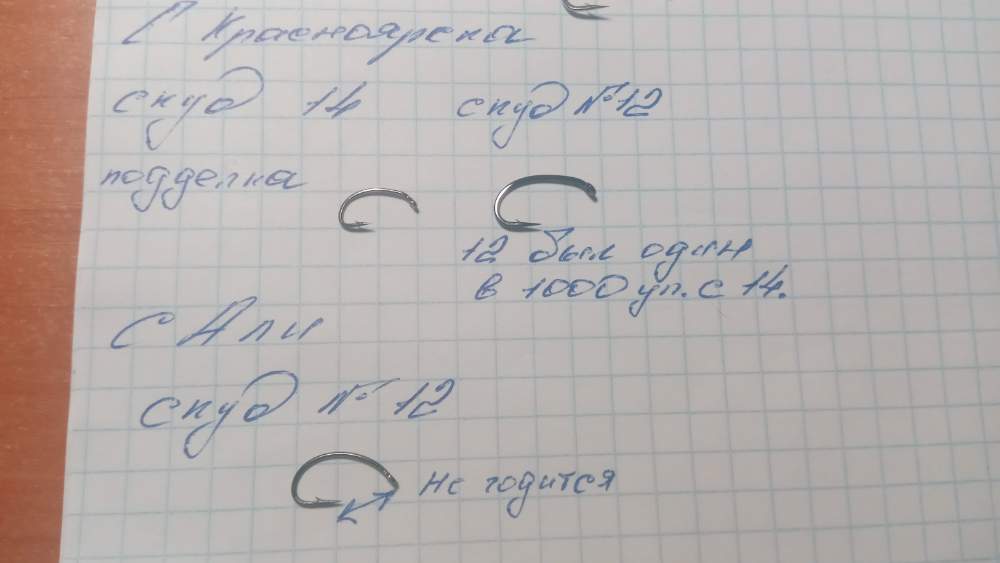 С Красноярска
скуд 14 скуд №12
подделка
12 был один
в 1000 уп. с 14.
С Али
скуд № 12
Не годится